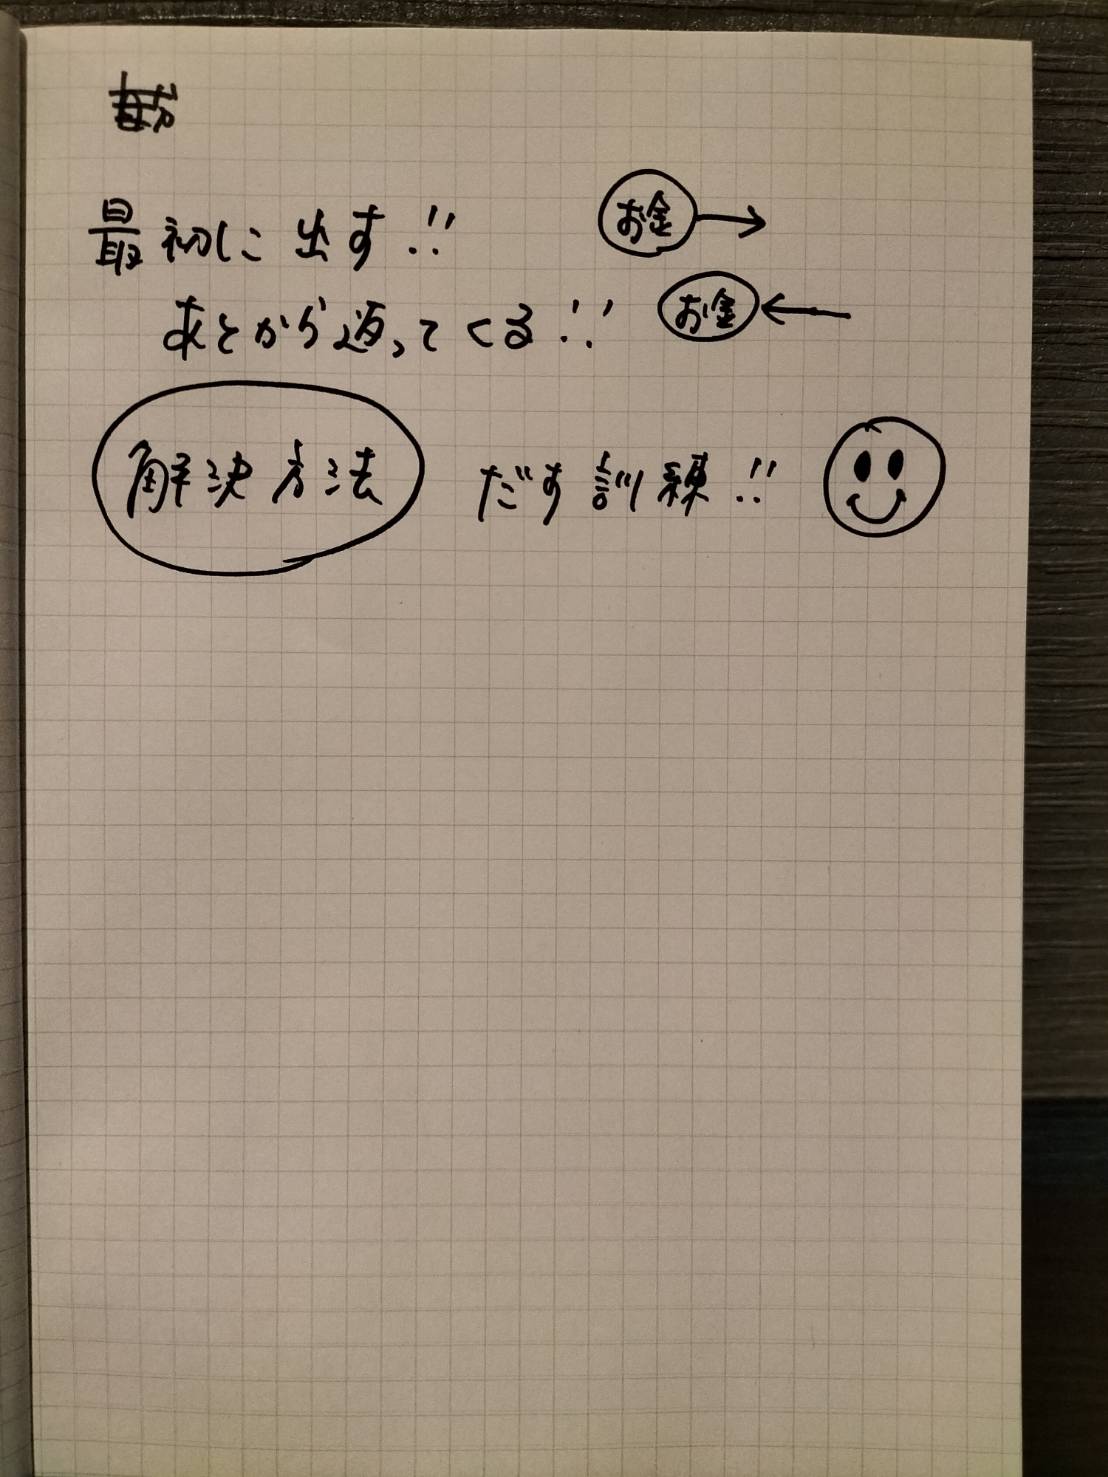 最初に出す!! お金→
あとから返ってくる!! お金←
解決方法 だす訓練!!